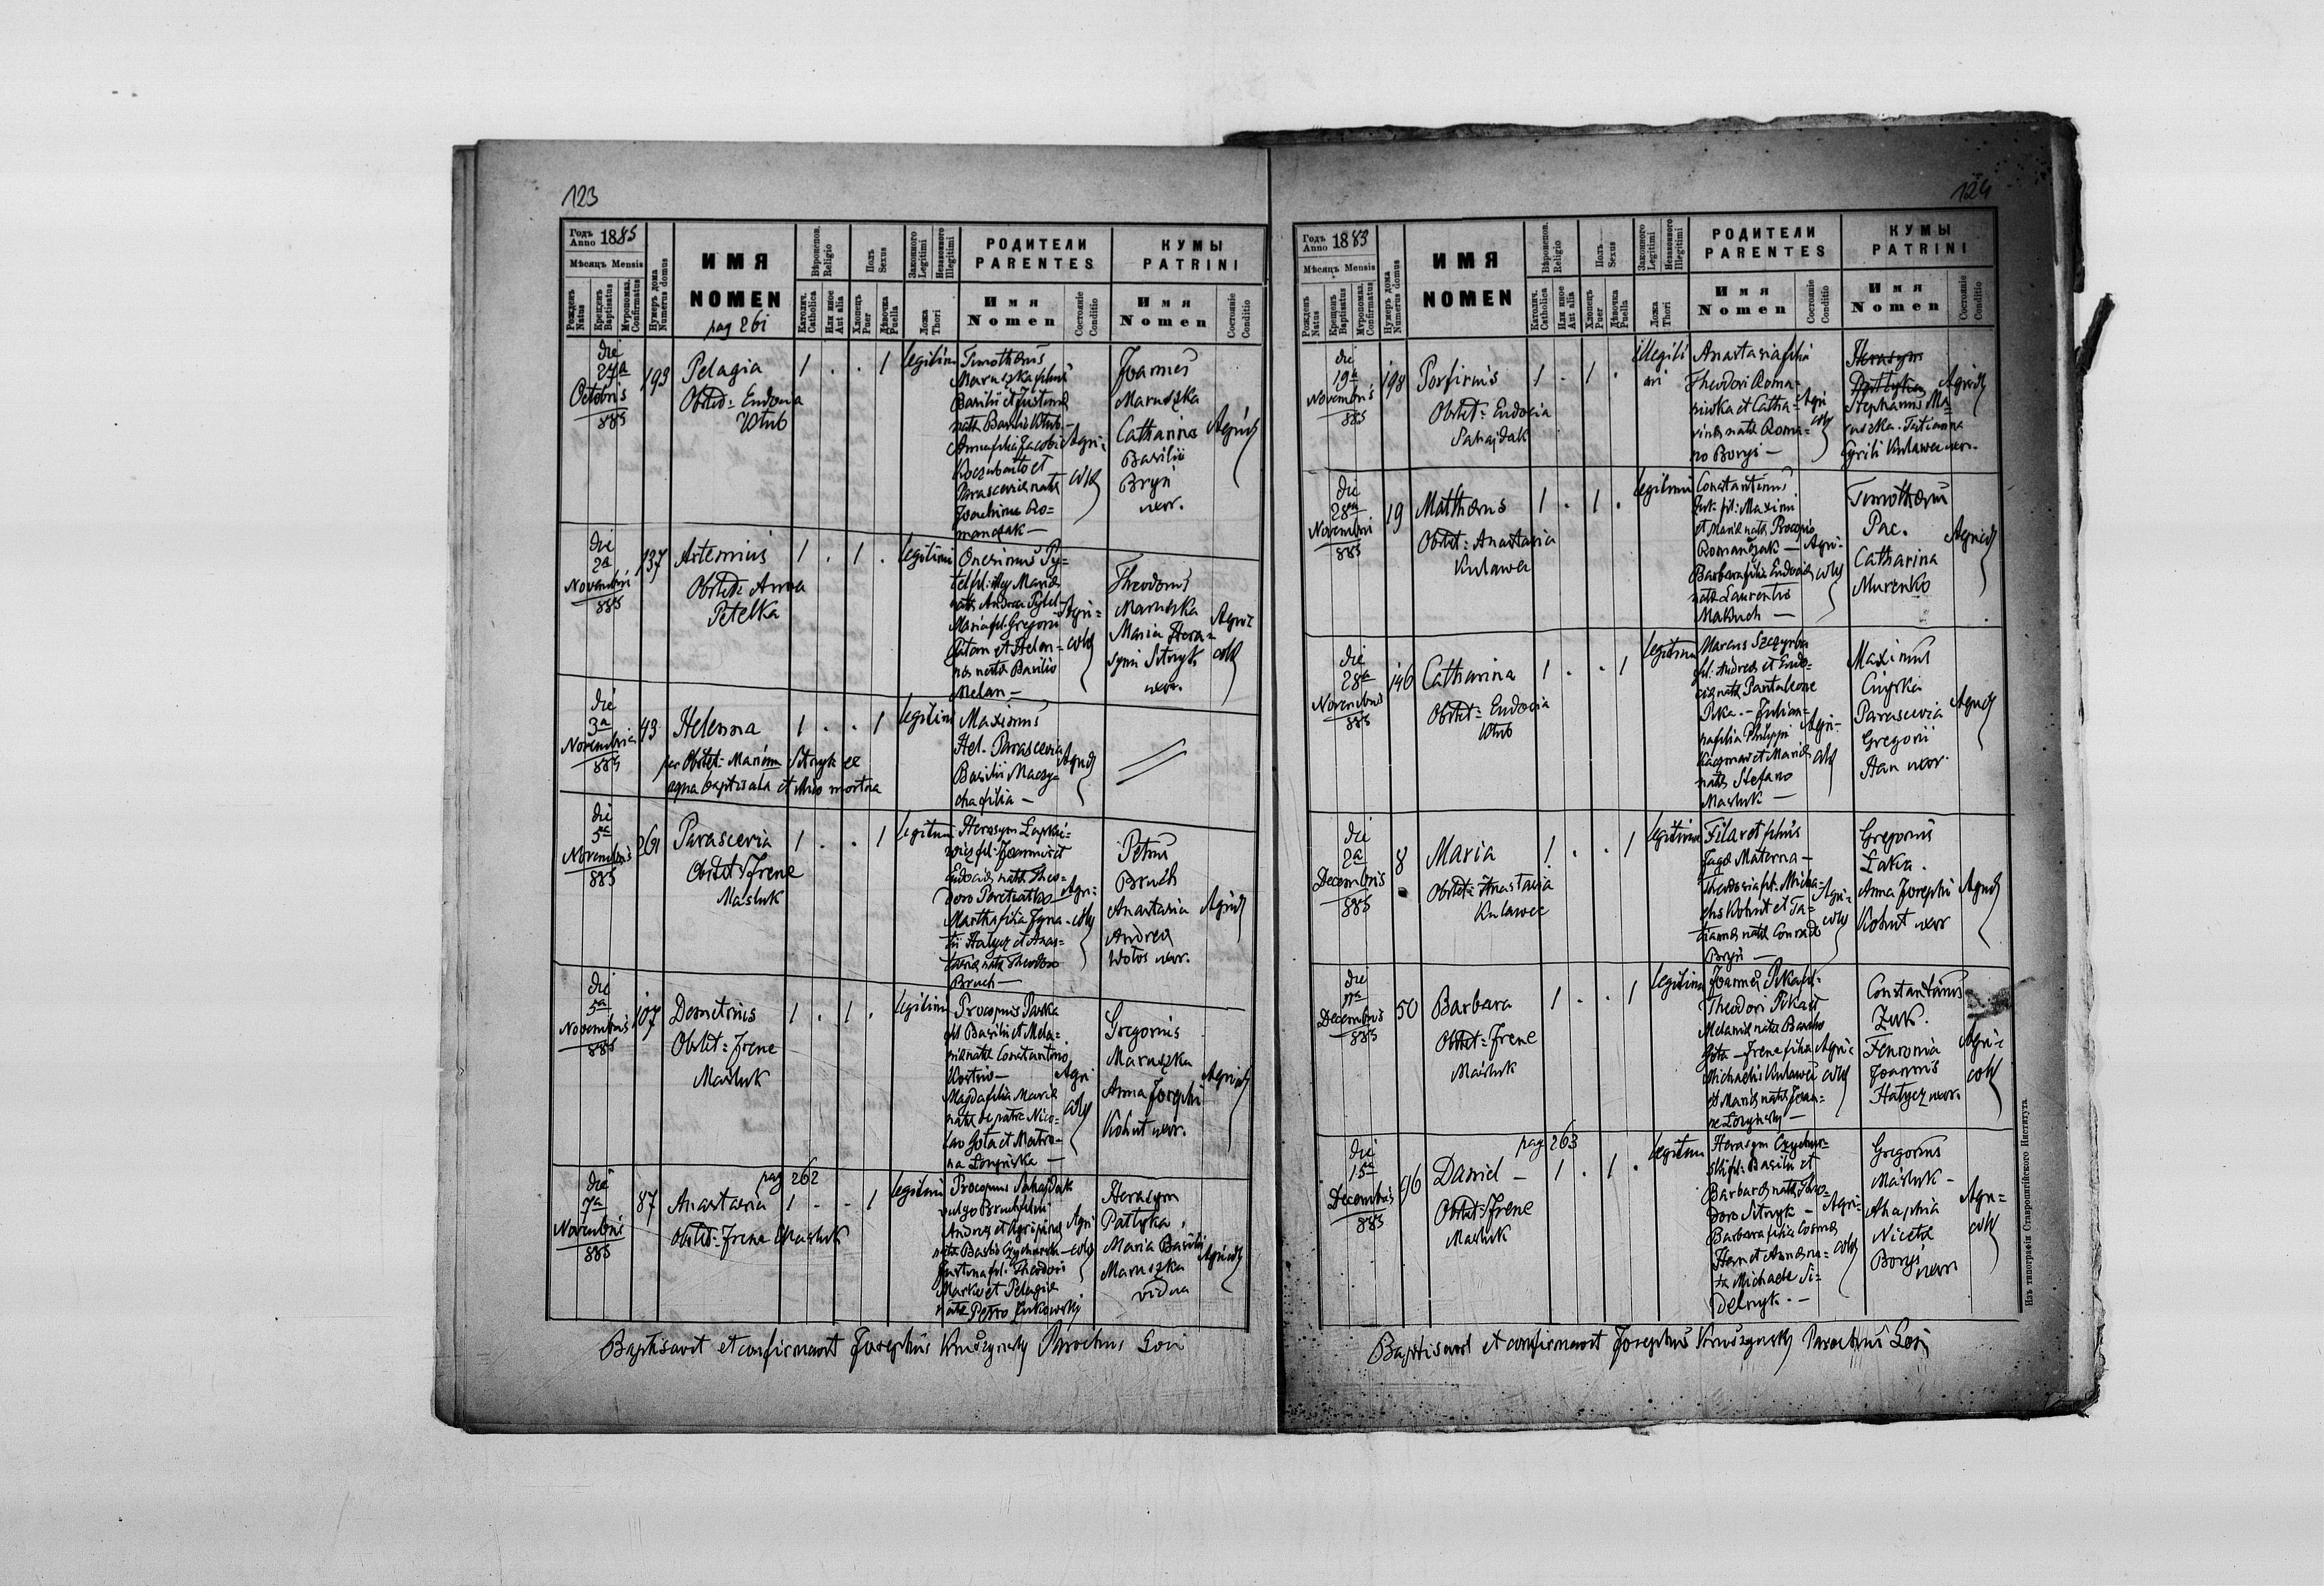 123
Годъ Anno 1885
Мѣсяцъ Mensis
Рожденъ Natus
Крещенъ Baptisatus
Мѵропомаз. Confirmatus
Нумеръ дома Numerus domus
ИМЯ
NOMEN
pag 261
Вѣроисповѣд. Religio
Католич. Catholica
Или иное Aut alia
Полъ Sexus
Хлопецъ Puer
Дѣвочка Puella
Законного Legitimi
Незаконного Illegitimi
Ложа Thori
РОДИТЕЛИ
PARENTES
Имя
Nomen
Состояніе Conditio
КУМЫ
PATRINI
Имя
Nomen
Состояніе Conditio
die
27a
Octobris
885
193
Pelagia
Obstet: Eudocia
1 . . 1
legitimi
Timotheus
Maruszka filius
Basilii et Justinae
Anna filia Jacobi
et
Parasceviae natae
Joachimo Ro=
manczak —
Agri=
colae
Joannes
Maruszka
Catharina
Basilii
Bryń
uxor.
Agricolae
die
2a
Novembris
885
137
Artemius
Obstet: Anna
Petelka
1 . 1 .
legitimi
Onesimus Py=
natae Andrea Pytel
Maria fil. Gregorii
nae natae Basilio
Melan —
Agri=
colae
Theodorus
Maruszka
Maria Hera=
symi Sitnyk
uxor.
Agri=
colae
die
3a
Novembris
885
43
Helenna
per Obstet: Mariam Sitnyk ex
aqua baptisata et mortua
1 . . 1
legitimi
Maximus
Hel. Parascevia
Basilii
filia —
Agricolae
die
5a
Novembris
885
261
Parascevia
Obstet: Irene
Masluk
1 . . 1
legitimi
Herasym
fil: Joannis et
Eudociae natae Theo=
doro
Martha filia Igna=
tii Halycz et Anas=
tasiae natae Theodoro
Bruch —
Agri=
colae
Petrus
Bruch
Anastasia
Andrea
Wolos uxor.
Agricolae
die
5a
Novembris
885
107
Demetrius
Obstet: Irene
Masluk
1 . 1 .
legitimi
Procopius
fil. Basilii et Mela=
niae natae Constantino
Magda filia Maria
natae de patre Nico=
lao Gota et Matro=
na —
Agri
colae
Gregorius
Maruszka
Anna Josephi
Kohut uxor.
Agricolae
pag 262
die
7a
Novembris
885
87
Anastasia
Obstet: Irene Masluk
1 . . 1
legitimi
Procopius Sahajdak
vulgo Bruch filius
Andreae et Agripinae
Justina fil. Theodori
et Pelagiae
natae Petro Zukowski
Agri
colae
Herasym
Pattyka.
Maria Basilii
Maruszka
vidua
Agricolae
Baptisavit et confirmavit Josephus Kruszynsky Parochus Loci
124
Годъ Anno 1883
Мѣсяцъ Mensis
Рожденъ Natus
Крещенъ Baptisatus
Мѵропомаз. Confirmatus
Нумеръ дома Numerus domus
ИМЯ
NOMEN
Вѣроисповѣд. Religio
Католич. Catholica
Или иное Aut alia
Полъ Sexus
Хлопецъ Puer
Дѣвочка Puella
Законного Legitimi
Незаконного Illegitimi
Ложа Thori
РОДИТЕЛИ
PARENTES
Имя
Nomen
Состояніе Conditio
КУМЫ
PATRINI
Имя
Nomen
Состояніе Conditio
die
19a
Novembris
885
198
Porfirius
Obstet: Eudocia
Sahajdak
1 . 1 .
illegiti
mi
Anastasia filia
Theodori Roma=
et Catha=
rinae natae Roma=
no Boryś —
Agri
colae
Herasym
Pattyka
Stephanus Ma=
ruszka. Tatianna
Cyrili Kulawec uxor.
Agricolae
die
28a
Novembris
885
19
Matthaeus
Obstet: Anastasia
Kulawec
1 . 1 .
legitimi
Constantinus
Żuk fil: Maximi
et Mariae natae Procopio
Romanczak —
Barbara filia Eudociae
natae Laurentio
Makuch —
Agri=
colae
Timotheus
Pac.
Catharina
Murenko
Agricolae
die
28a
Novembris
885
146
Catharina
Obstet: Eudocia
1 . . 1
legitimi
Marcus Szczyrba
fil. Andreae et Eudo=
ciae natae Pantaleone
Pika. — Julian=
na filia Philippi
Kaczmar et Mariae
natae Stefano
Masluk —
Agri=
colae
Maximus
Parascevia
Gregorii
Han uxor.
Agricolae
die
2a
Decembris
885
8
Maria
Obstet: Anastasia
Kulawec
1 . . 1
legitimi
Filaret filius
Materna —
Theodosia fil. Micha=
elis Kohut et Ta=
tiannae natae Conrado
Bryń —
Agri=
colae
Gregorius
Laka.
Anna Josephi
Kohut uxor
Agricolae
die
11a
Decembris
885
50
Barbara
Obstet: Irene
Masluk
1 . . 1
legitimi
Joannes Pika fil.
Theodori Pika et
Melaniae natae Basilio
Gota — Irene filia
Michaelis Kulawec
et Mariae natae Joan=
ne —
Agri=
colae
Constantinus
Żuk.
Fenronia
Joannis
Halycz uxor.
Agri=
colae
pag 263
die
15a
Decembris
885
96
Daniel —
Obstet: Irene
Masluk
1 . 1 .
legitimi
Herasym
fil: Basilii et
Barbarae natae Theo=
doro Sitnyk —
Barbara filia Cosmae
Han et Annae na=
ta Michaele Si=
delnyk. —
Agri=
colae
Gregorius
Masluk —
Ahaphia
Nicetae
Boryś
uxor
Agri=
colae
Baptisavit et confirmavit Josephus Kruszynsky Parochus Loci
Изъ типографіи Ставропигійского Института